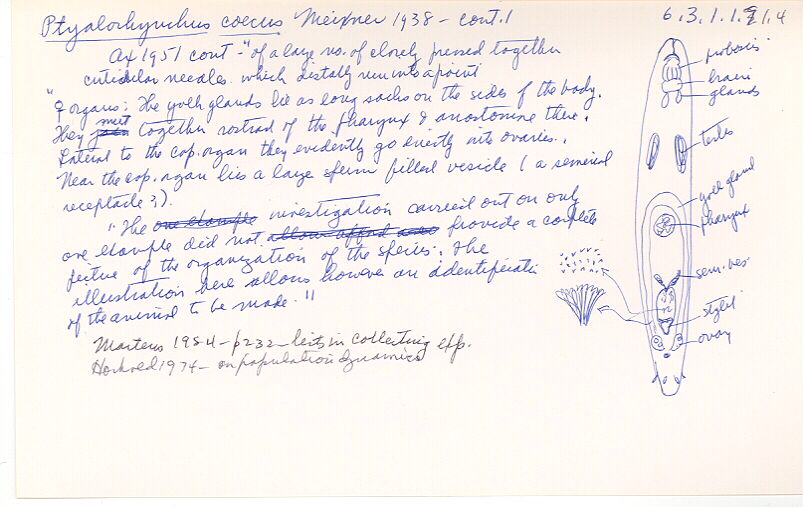 Ptyalorhynchus coecus Meixner 1938 - cont.1
6.3.1.1.21.4
Ax 1951 cont - "of a large no. of closely pressed together
cuticular needles which distally run into a point
"♀ organs: The yolk glands lie as long sacks on the sides of the body.
They meet together rostrad of the pharynx & anastomine there.
Lateral to the cop. organ they evidently go directly into ovaries.
Near the cop. organ lies a large sperm filled vesicle (a seminal
receptacle?).
"The one example investigation carried out on only
one example did not allow afford provide a complete
picture of the organization of the species. The
illustration here allows however an identification
of the animal to be made."
Martens 1984 - p232 - lists in collecting exp.
1974 - on population dynamics
proboscis
brain
glands
testes
yolk gland
pharynx
sem. ves.
stylet
ovary